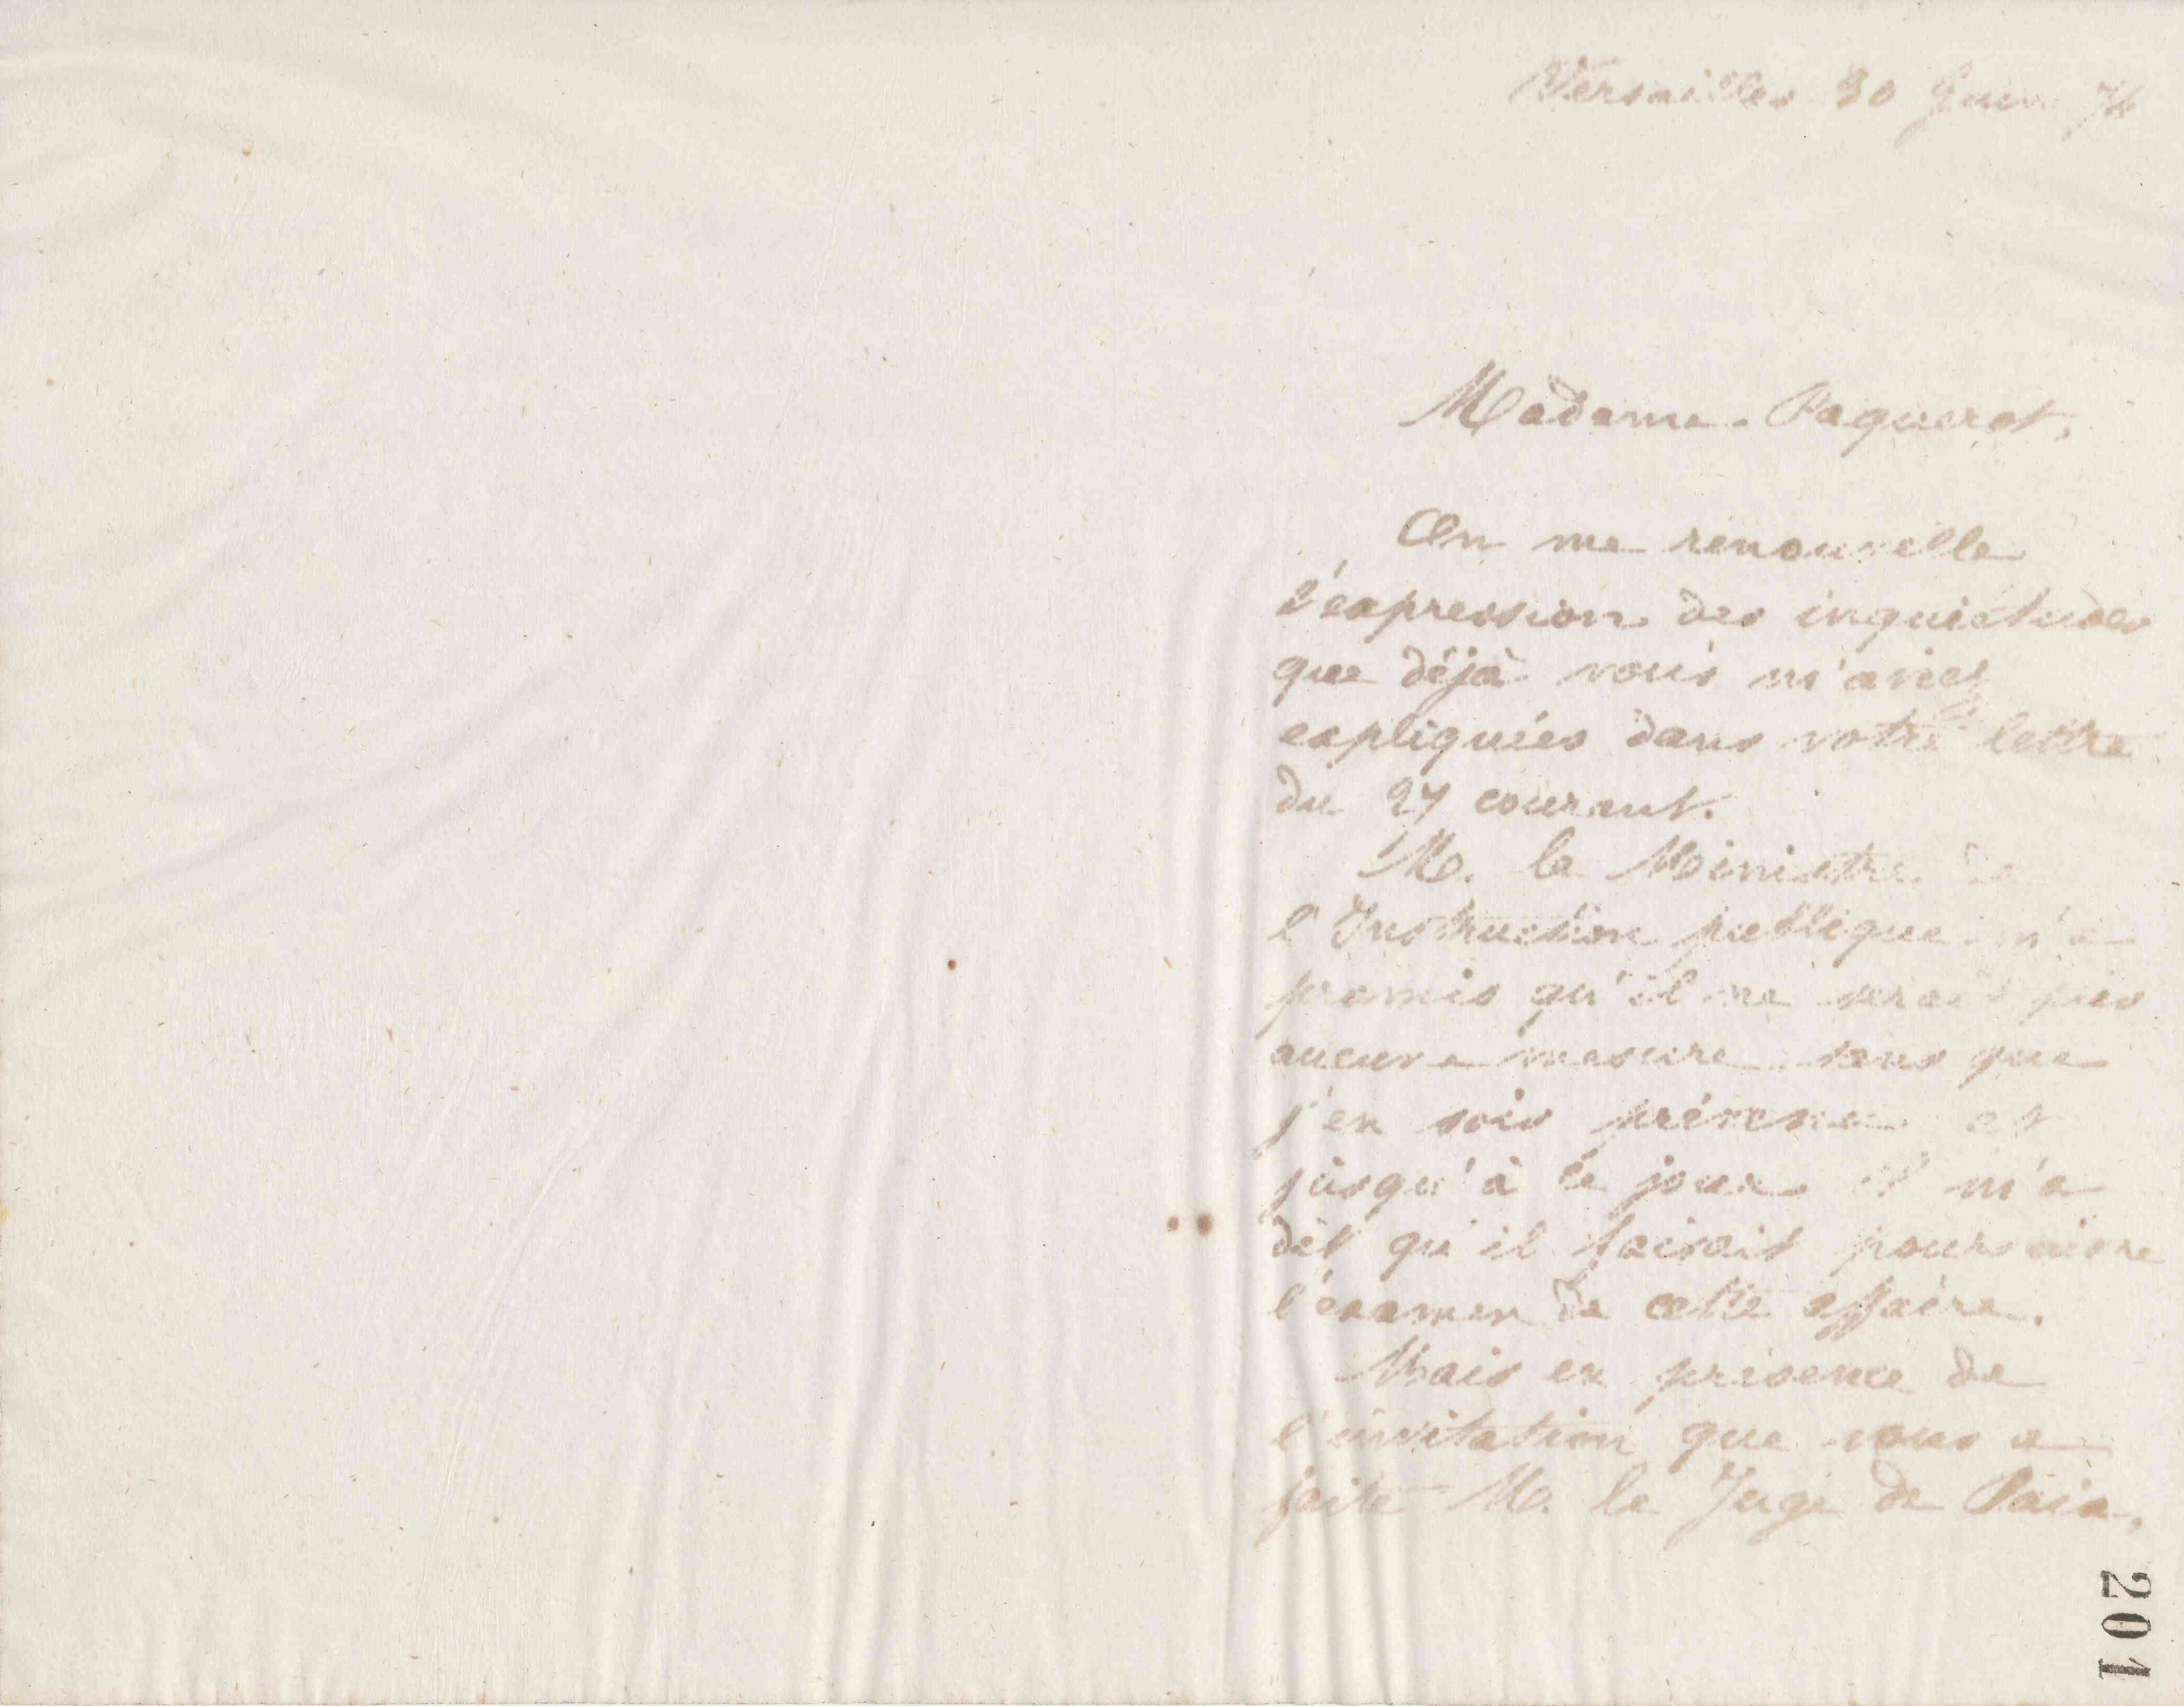 Versailles 30 Juin 74
Madame Paquerot,
On me renouvelle
l'expression des inquiétudes
que déjà vous m'aviez
expliquées dans votre lettre
du 27 courant.
M. le Ministre de
l'Instruction publique m'a
promis qu'il ne serait pris
aucune mesure sans que
j'en sois prévenu et
jusqu'à ce jour il m'a
dit qu'il faisait poursuivre
l'examen de cette affaire.
Mais en présence de
l'invitation que vous a
faite M. le Juge de Paix,
201